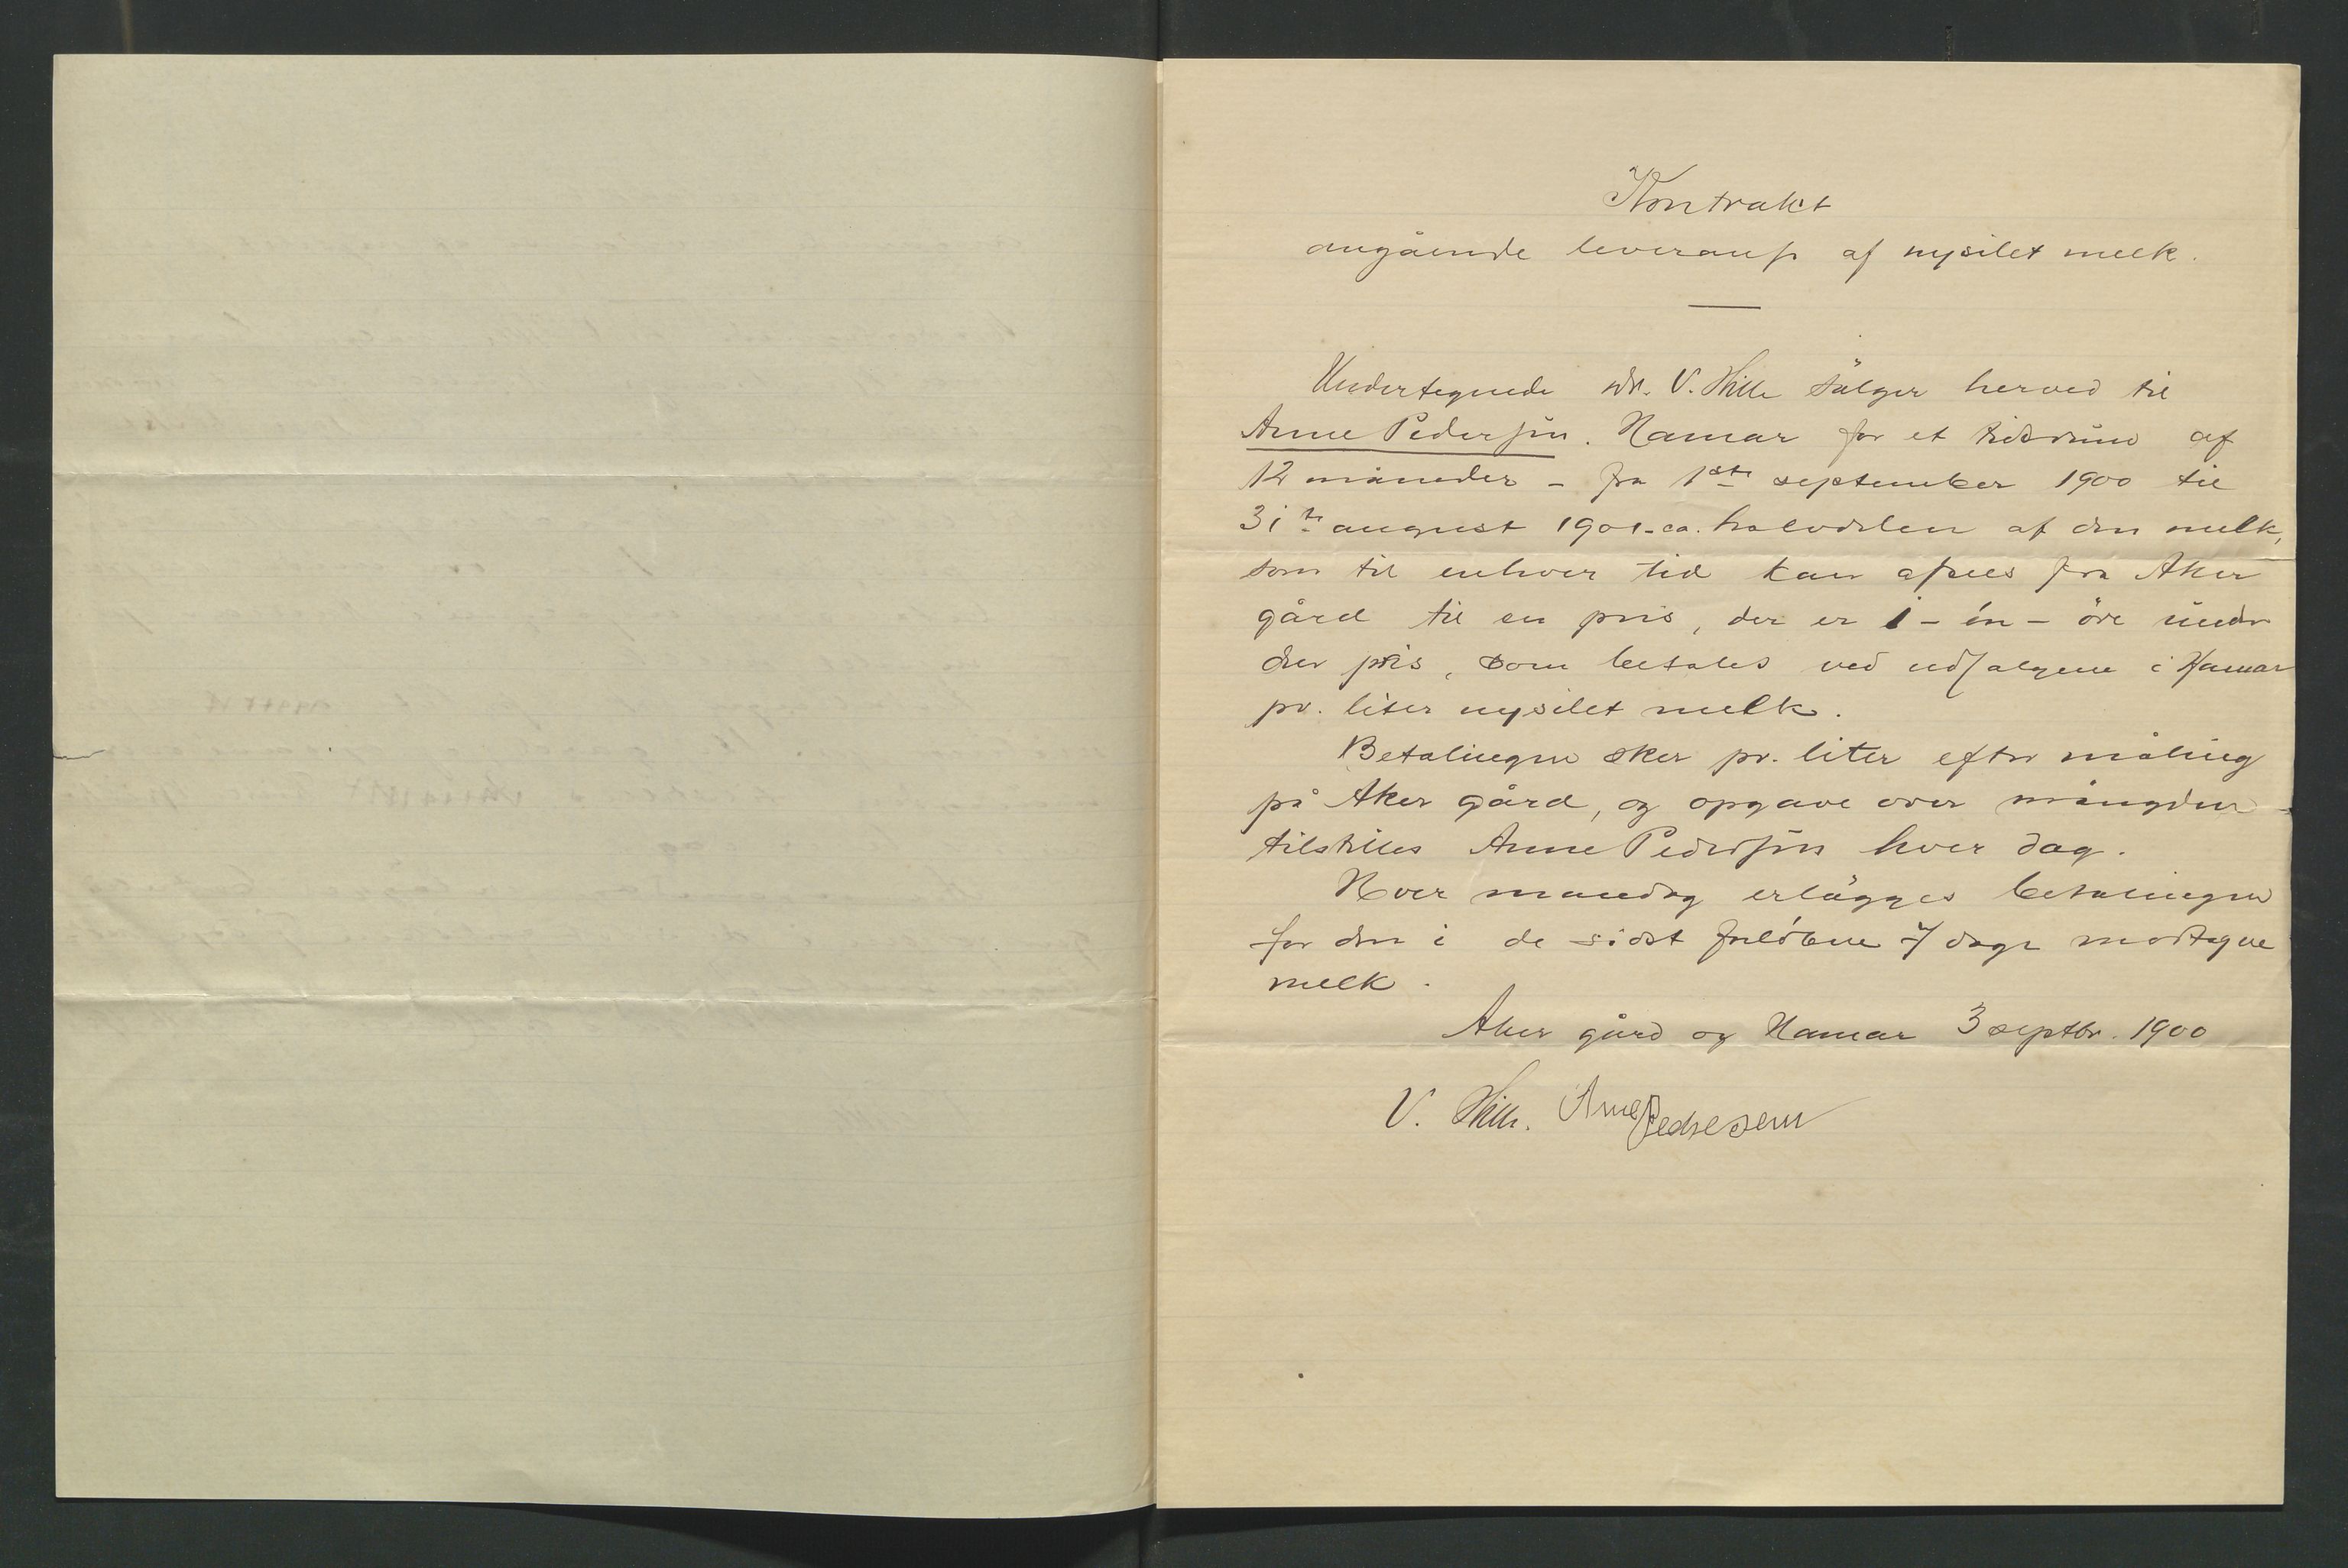 Kontrakt
angående leveranse af nysilet melk.
Undertegnede W. V. Hille sälger herved til
Anne Pedersen. Hamar for et tidsrum af
12 måneder - fra 1ste september 1900 til
31te august 1901 - ca. halvdelen af den melk,
som til enhver tid kan afsees fra Aker
gård til en pris, der er 1 - én - öre under
den pris, som betales ved udsalgene i Hamar
pr. liter nysilet melk.
Betalingen sker pr. liter efter måling
på Aker gård, og opgave over mängden
tilstilles Anne Pedersen hver dag.
Hver mandag erlägges betalingen
for den i de sidst forløbne 7 dage modtagne
melk.
Aker gård og Hamar 3 septbr. 1900
V. Hille. Anne Pedresenn